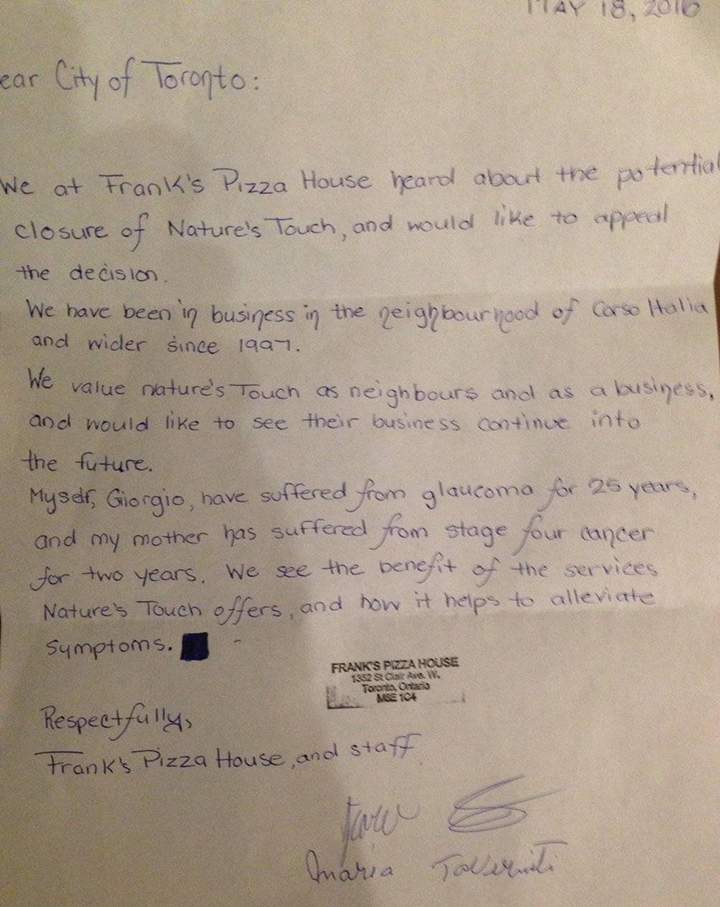 MAY 18, 2016
ear City of Toronto:
We at Frank's Pizza House heard about the potential
closure of Nature's Touch, and would like to appeal
the decision.
We have been in business in the neighbourhood of Corso Italia
and wider since 1997.
We value nature's Touch as neighbours and as a business,
and would like to see their business continue into
the future.
Myself, Giorgio, have suffered from glaucoma for 25 years,
and my mother has suffered from stage four cancer
for two years. We see the benefit of the services
Nature's Touch offers, and how it helps to alleviate
symptoms.
FRANK'S PIZZA HOUSE
1352 St Clair Ave. W.
Toronto, Ontario
M6E 1C4
Respectfully,
Frank's Pizza House, and staff.
Maria